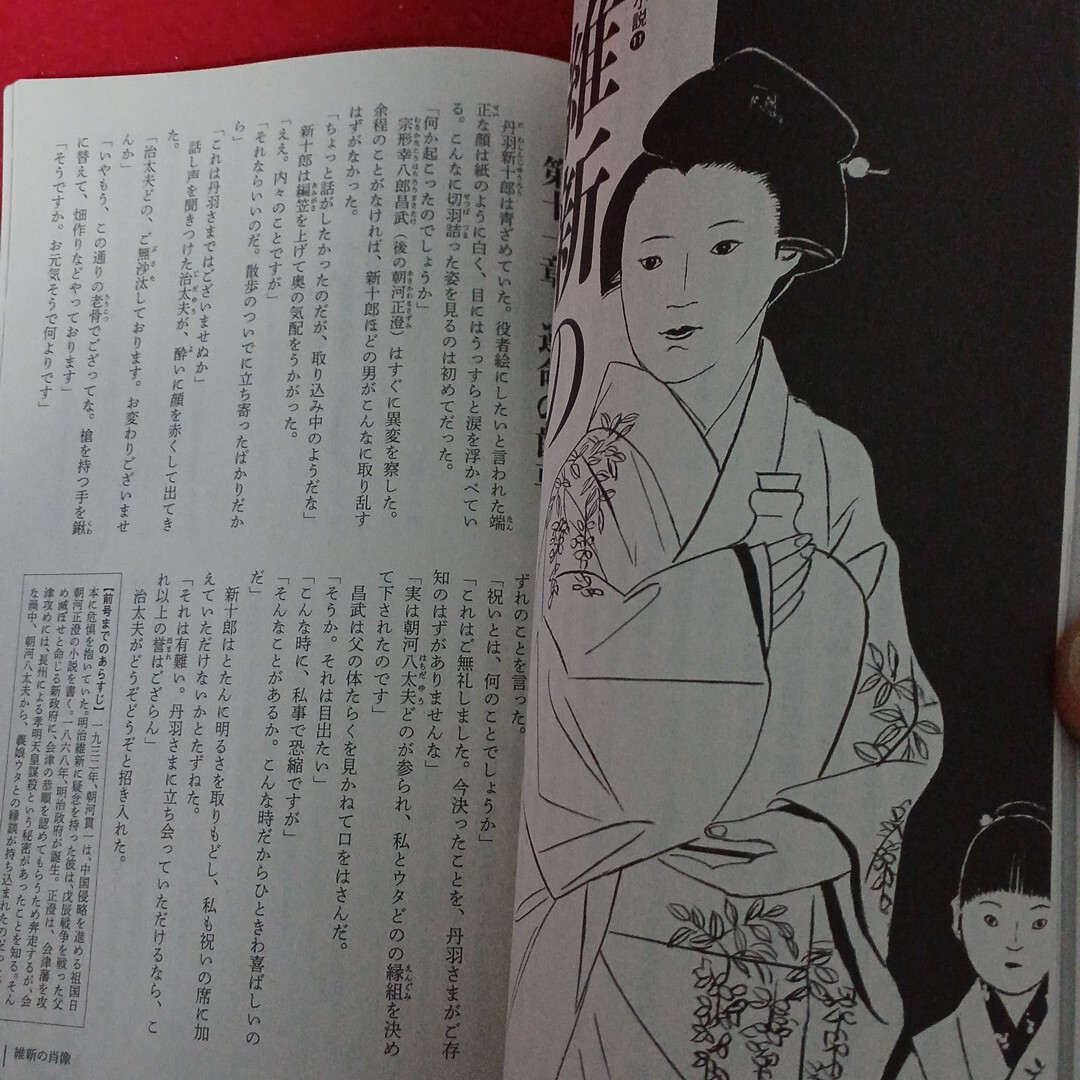 小説 11
維新の
丹羽新十郎は青ざめていた。役者絵にしたいと言われた端
正な顔は紙のように白く、目にはうっすらと涙を浮かべてい
る。こんなに切羽詰った姿を見るのは初めてだった。
「何か起こったのでしょうか」
宗形幸八郎昌武（後の朝河正澄）はすぐに異変を察した。
余程のことがなければ、新十郎ほどの男がこんなに取り乱す
はずがなかった。
「ちょっと話がしたかったのだが、取り込み中のようだな」
新十郎は編笠を上げて奥の気配をうかがった。
「ええ。内々のことですが」
「それならいいのだ。散歩のついでに立ち寄ったばかりだか
ら」
「これは丹羽さまではございませぬか」
話し声を聞きつけた治太夫が、酔いに顔を赤くして出てき
た。
「治太夫どの、ご無沙汰しております。お変わりございませ
んか」
「いやもう、この通りの老骨でござってな。槍を持つ手を鍬
に替えて、畑作りなどやっております」
「そうですか。お元気そうで何よりです」
ずれのことを言った。
「祝いとは、何のことでしょうか」
「これはご無礼しました。今決ったことを、丹羽さまがご存
知のはずがありませんな」
「実は朝河八太夫どのが参られ、私とウタどのの縁組を決め
て下されたのです」
昌武は父の体たらくを見かねて口をはさんだ。
「そうか。それは目出たい」
「こんな時に、私事で恐縮ですが」
「そんなことがあるか。こんな時だからひときわ喜ばしいの
だ」
新十郎はとたんに明るさを取りもどし、私も祝いの席に加
えていただけないかとたずねた。
「それは有難い。丹羽さまに立ち会っていただけるなら、こ
れ以上の誉はござらん」
治太夫がどうぞどうぞと招き入れた。
【前号までのあらすじ】一九三二年、朝河貫一は、中国侵略を進める祖国日
本に危惧を抱いていた。明治維新に疑念を持った彼は、戊辰戦争を戦った父
朝河正澄の小説を書く。一八六八年、明治政府が誕生。正澄は、会津藩を攻
め滅ぼせと命じる新政府に、会津の恭順を認めてもらうため奔走するが、会
津攻めには、長州による孝明天皇謀殺という秘密があったことを知る。そん
な渦中、朝河八太夫から、義娘ウタとの縁談が持ち込まれたのだ
維新の肖像